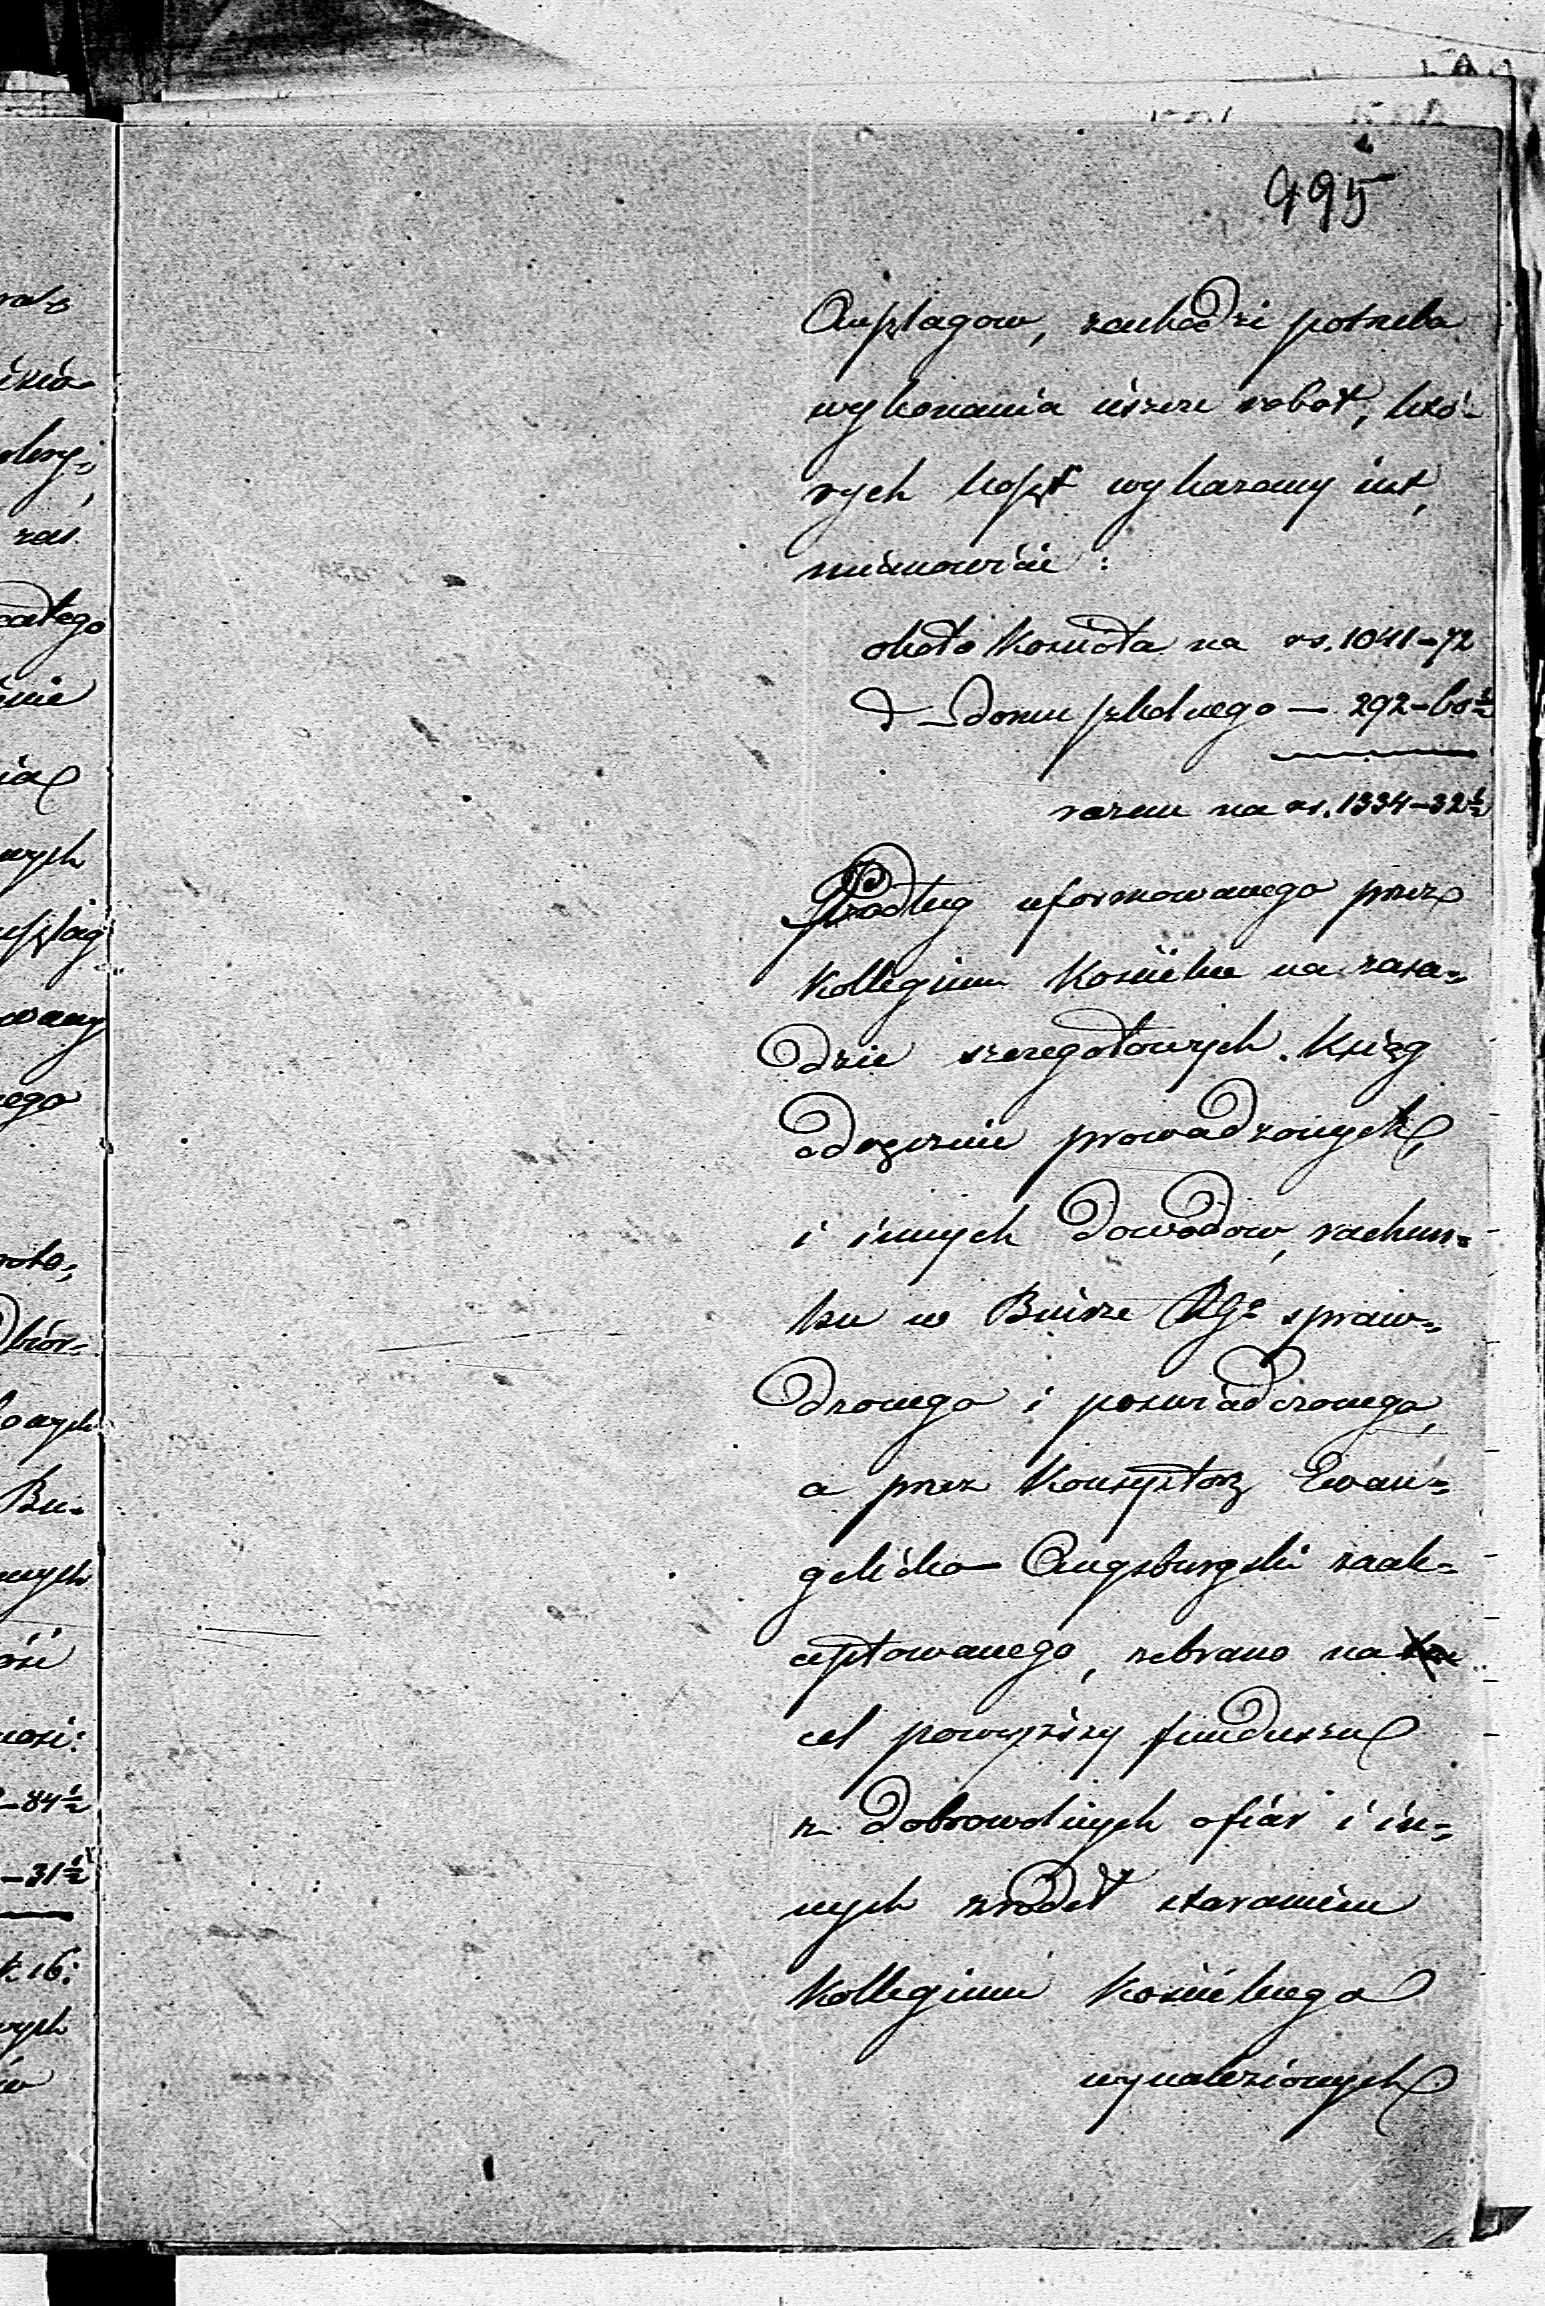 495
Anszlagow, zachodzi potrzeba
wykonania jeszcze robot, któ-
rych koszt wykazany jest,
mianowicie:
około Kościoła na rs. 1041-72
d - domu szkolnego — 292-60½
razem na rs. 1334-32½
Podług uformowanego przez
Kollegium Kościelne na zasa=
dzie szczegołowych Ksiąg
odręcznie prowadzonych,
i innych dowodow, rachun=
ku w Biurze spraw=
dzonego i poswiadczonego,
a przez Konsystorz Ewan=
gelicko-Augsburgski zaak=
ceptowanego, zebrano na
cel powyższy funduszu
z dobrowolnych ofiar i in=
nych zrodeł staraniem
Kollegium Kościelnego
wynalezionych
ra-
zas
całego
wych
nego
nych
Bu-
nych
-84½
-31½
16:
wych